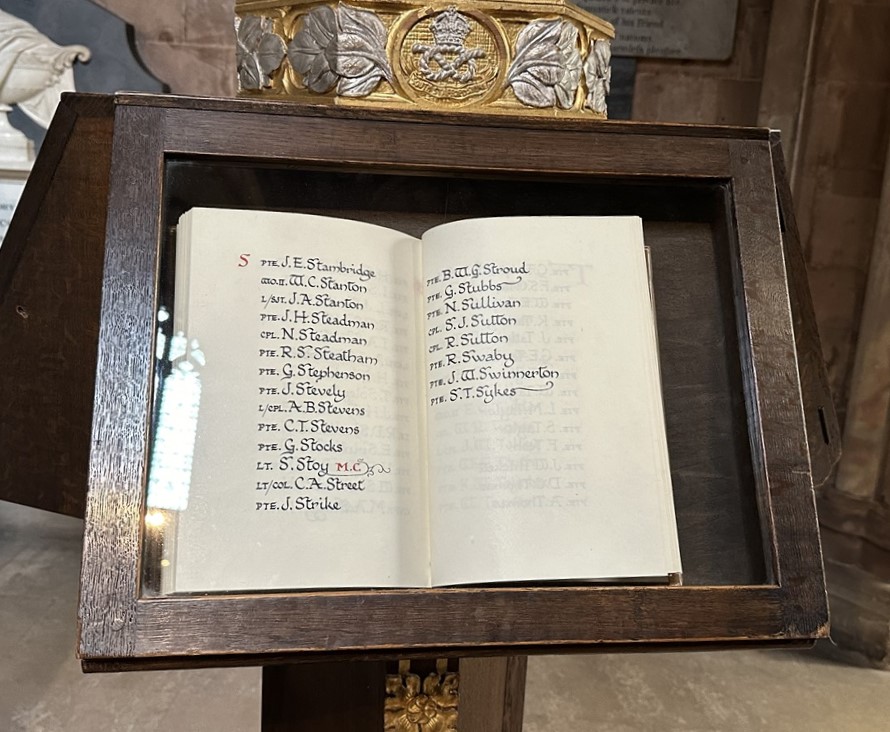 S PTE. J.E. Stambridge
W.O.II. W.C. Stanton
L/SJT. J.A. Stanton
PTE. J.H. Steadman
CPL. N. Steadman
PTE. R.S. Steatham
PTE. G. Stephenson
PTE. J. Stevely
L/CPL. A.B. Stevens
PTE. C.T. Stevens
PTE. G. Stocks
LT. S. Stoy M.C.
LT/COL. C.A. Street
PTE. J. Strike
PTE. B.W.G. Stroud
PTE. G. Stubbs
PTE. N. Sullivan
CPL. S.J. Sutton
CPL. R. Sutton
PTE. R. Swaby
PTE. J.W. Swinnerton
PTE. S.T. Sykes